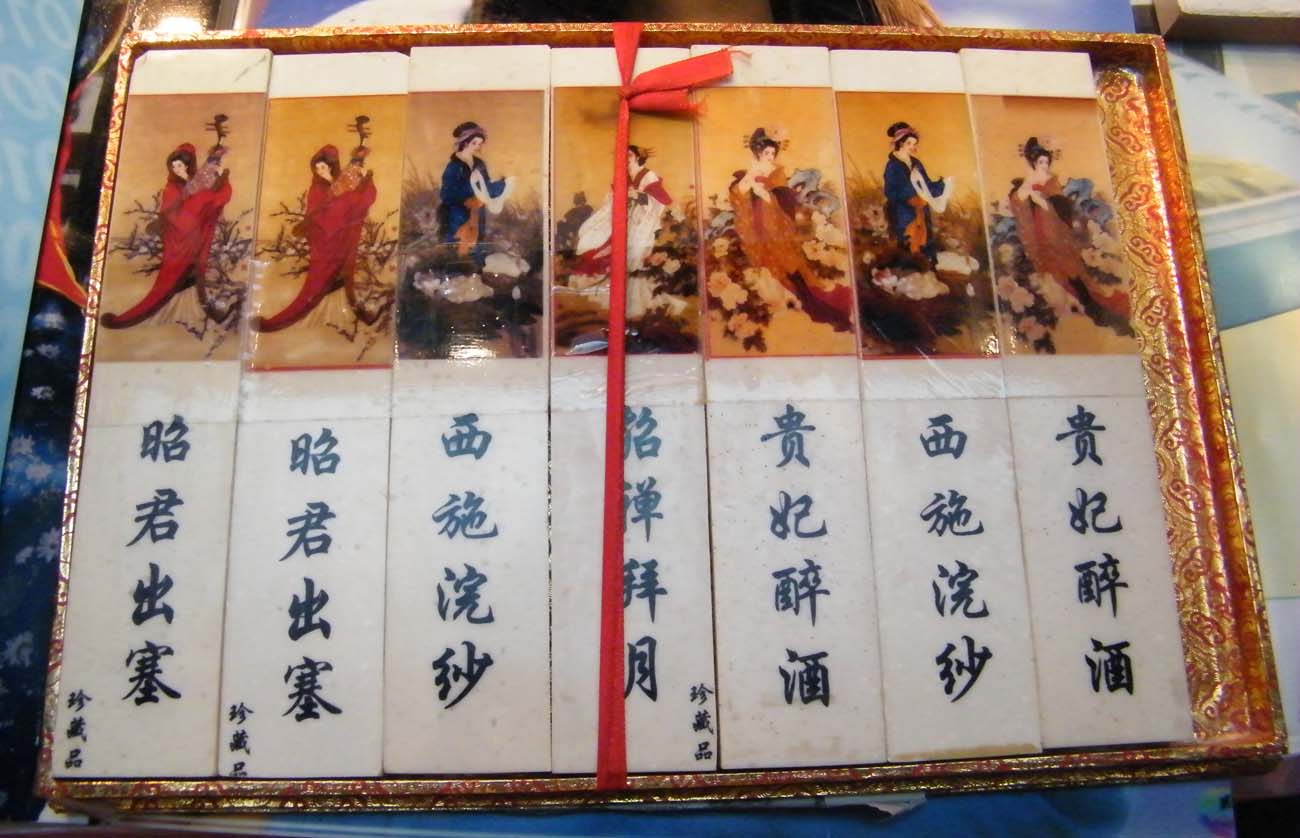 昭君出塞
珍藏品
昭君出塞
珍藏品
西施浣纱
貂蝉拜月
珍藏品
贵妃醉酒
西施浣纱
贵妃醉酒